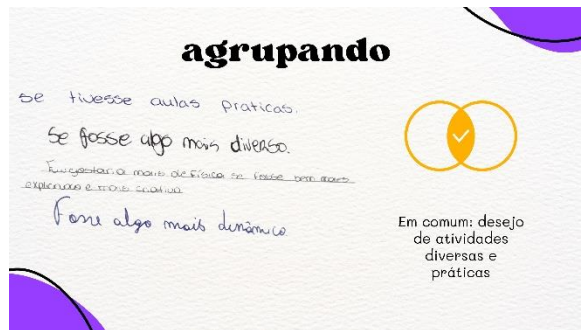 agrupando
se tivesse aulas praticas.
Se fosse algo mais diverso.
Eu gostaria mais de Física se fosse bem mais
explicado e mais criativa
Fosse algo mais dinâmico
Em comum: desejo
de atividades
diversas e
práticas